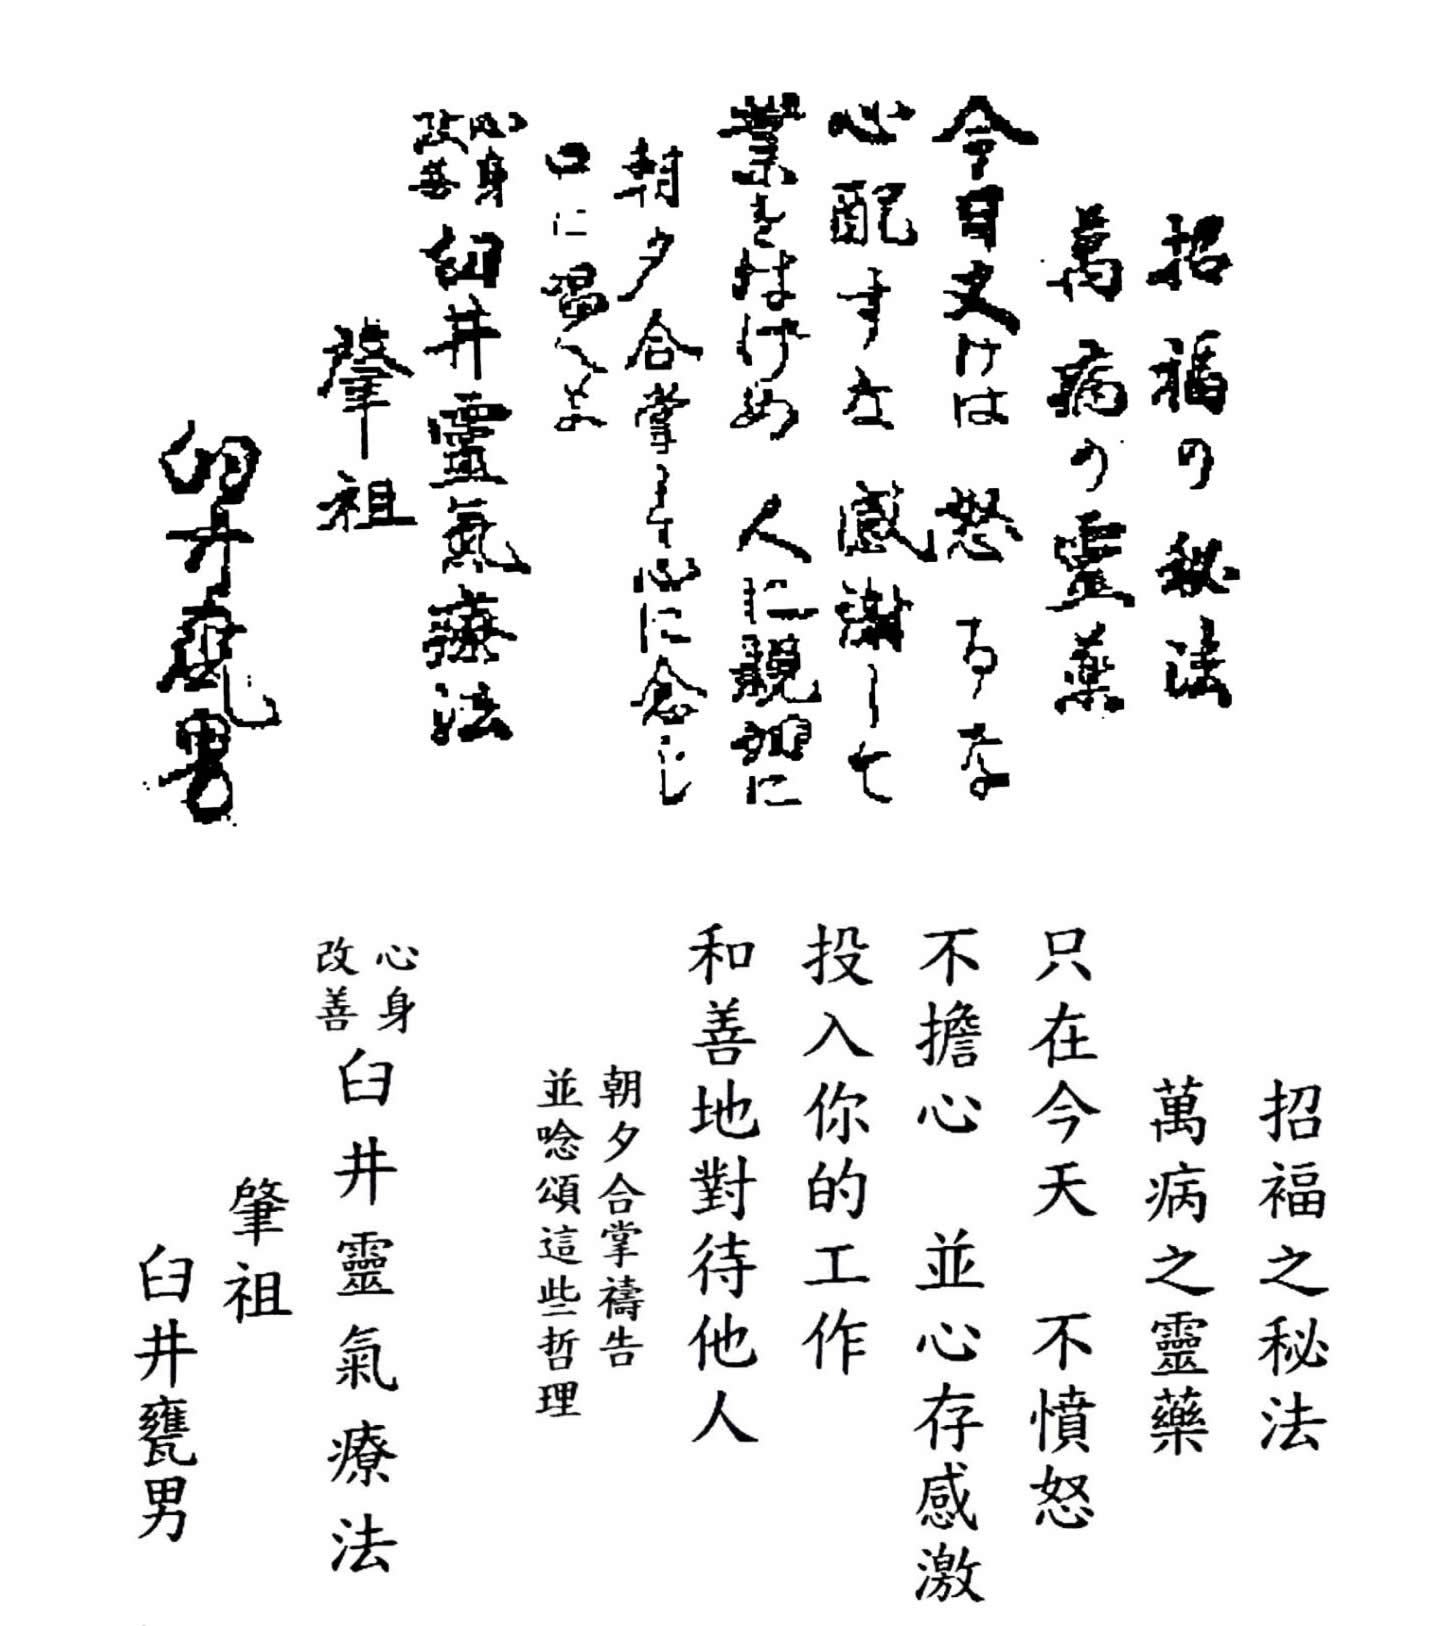 招福の秘法
萬病の靈薬
今日丈けは 怒るな
心配すな 感謝して
業をはげめ 人に親切に
朝夕合掌して心に念じ
口に唱へよ
心身
改善
臼井靈氣療法
肇祖
臼井甕男
招福之秘法
萬病之靈藥
只在今天 不憤怒
不擔心 並心存感激
投入你的工作
和善地對待他人
朝夕合掌禱告
並唸頌這些哲理
心身
改善
臼井靈氣療法
肇祖
臼井甕男